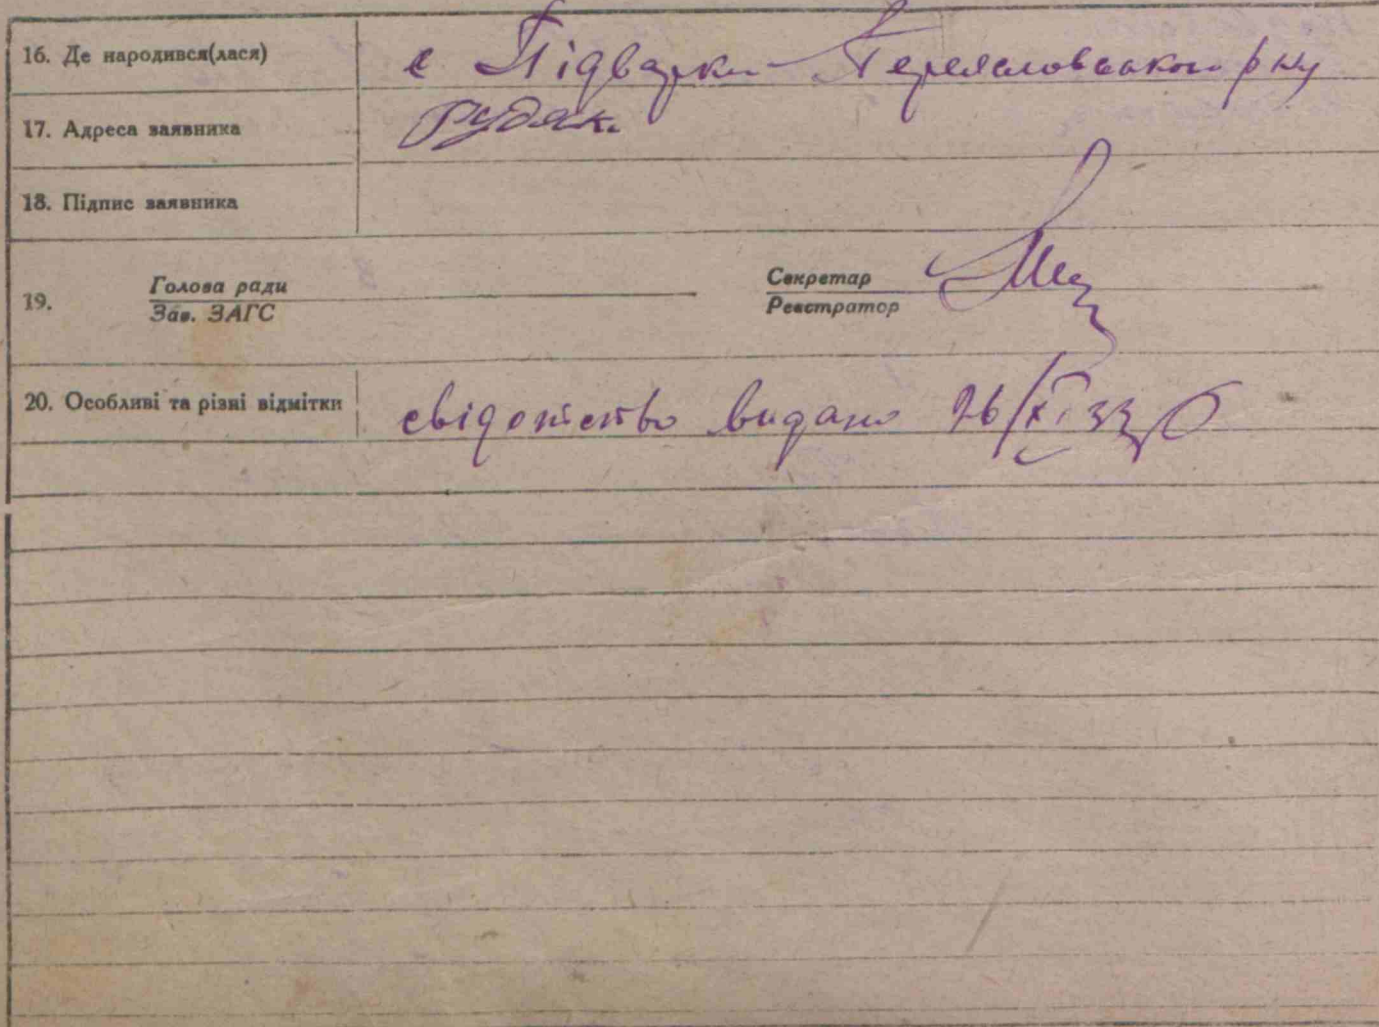 16. Де народився(лася) с Підварки Переяславського р ну
17. Адреса заявника Рудяк
18. Підпис заявника
19. Голова ради Секретар
Зав. ЗАГС Реєстратор
20. Особливі та різні відмітки свідоцтво видано 26/XI 33